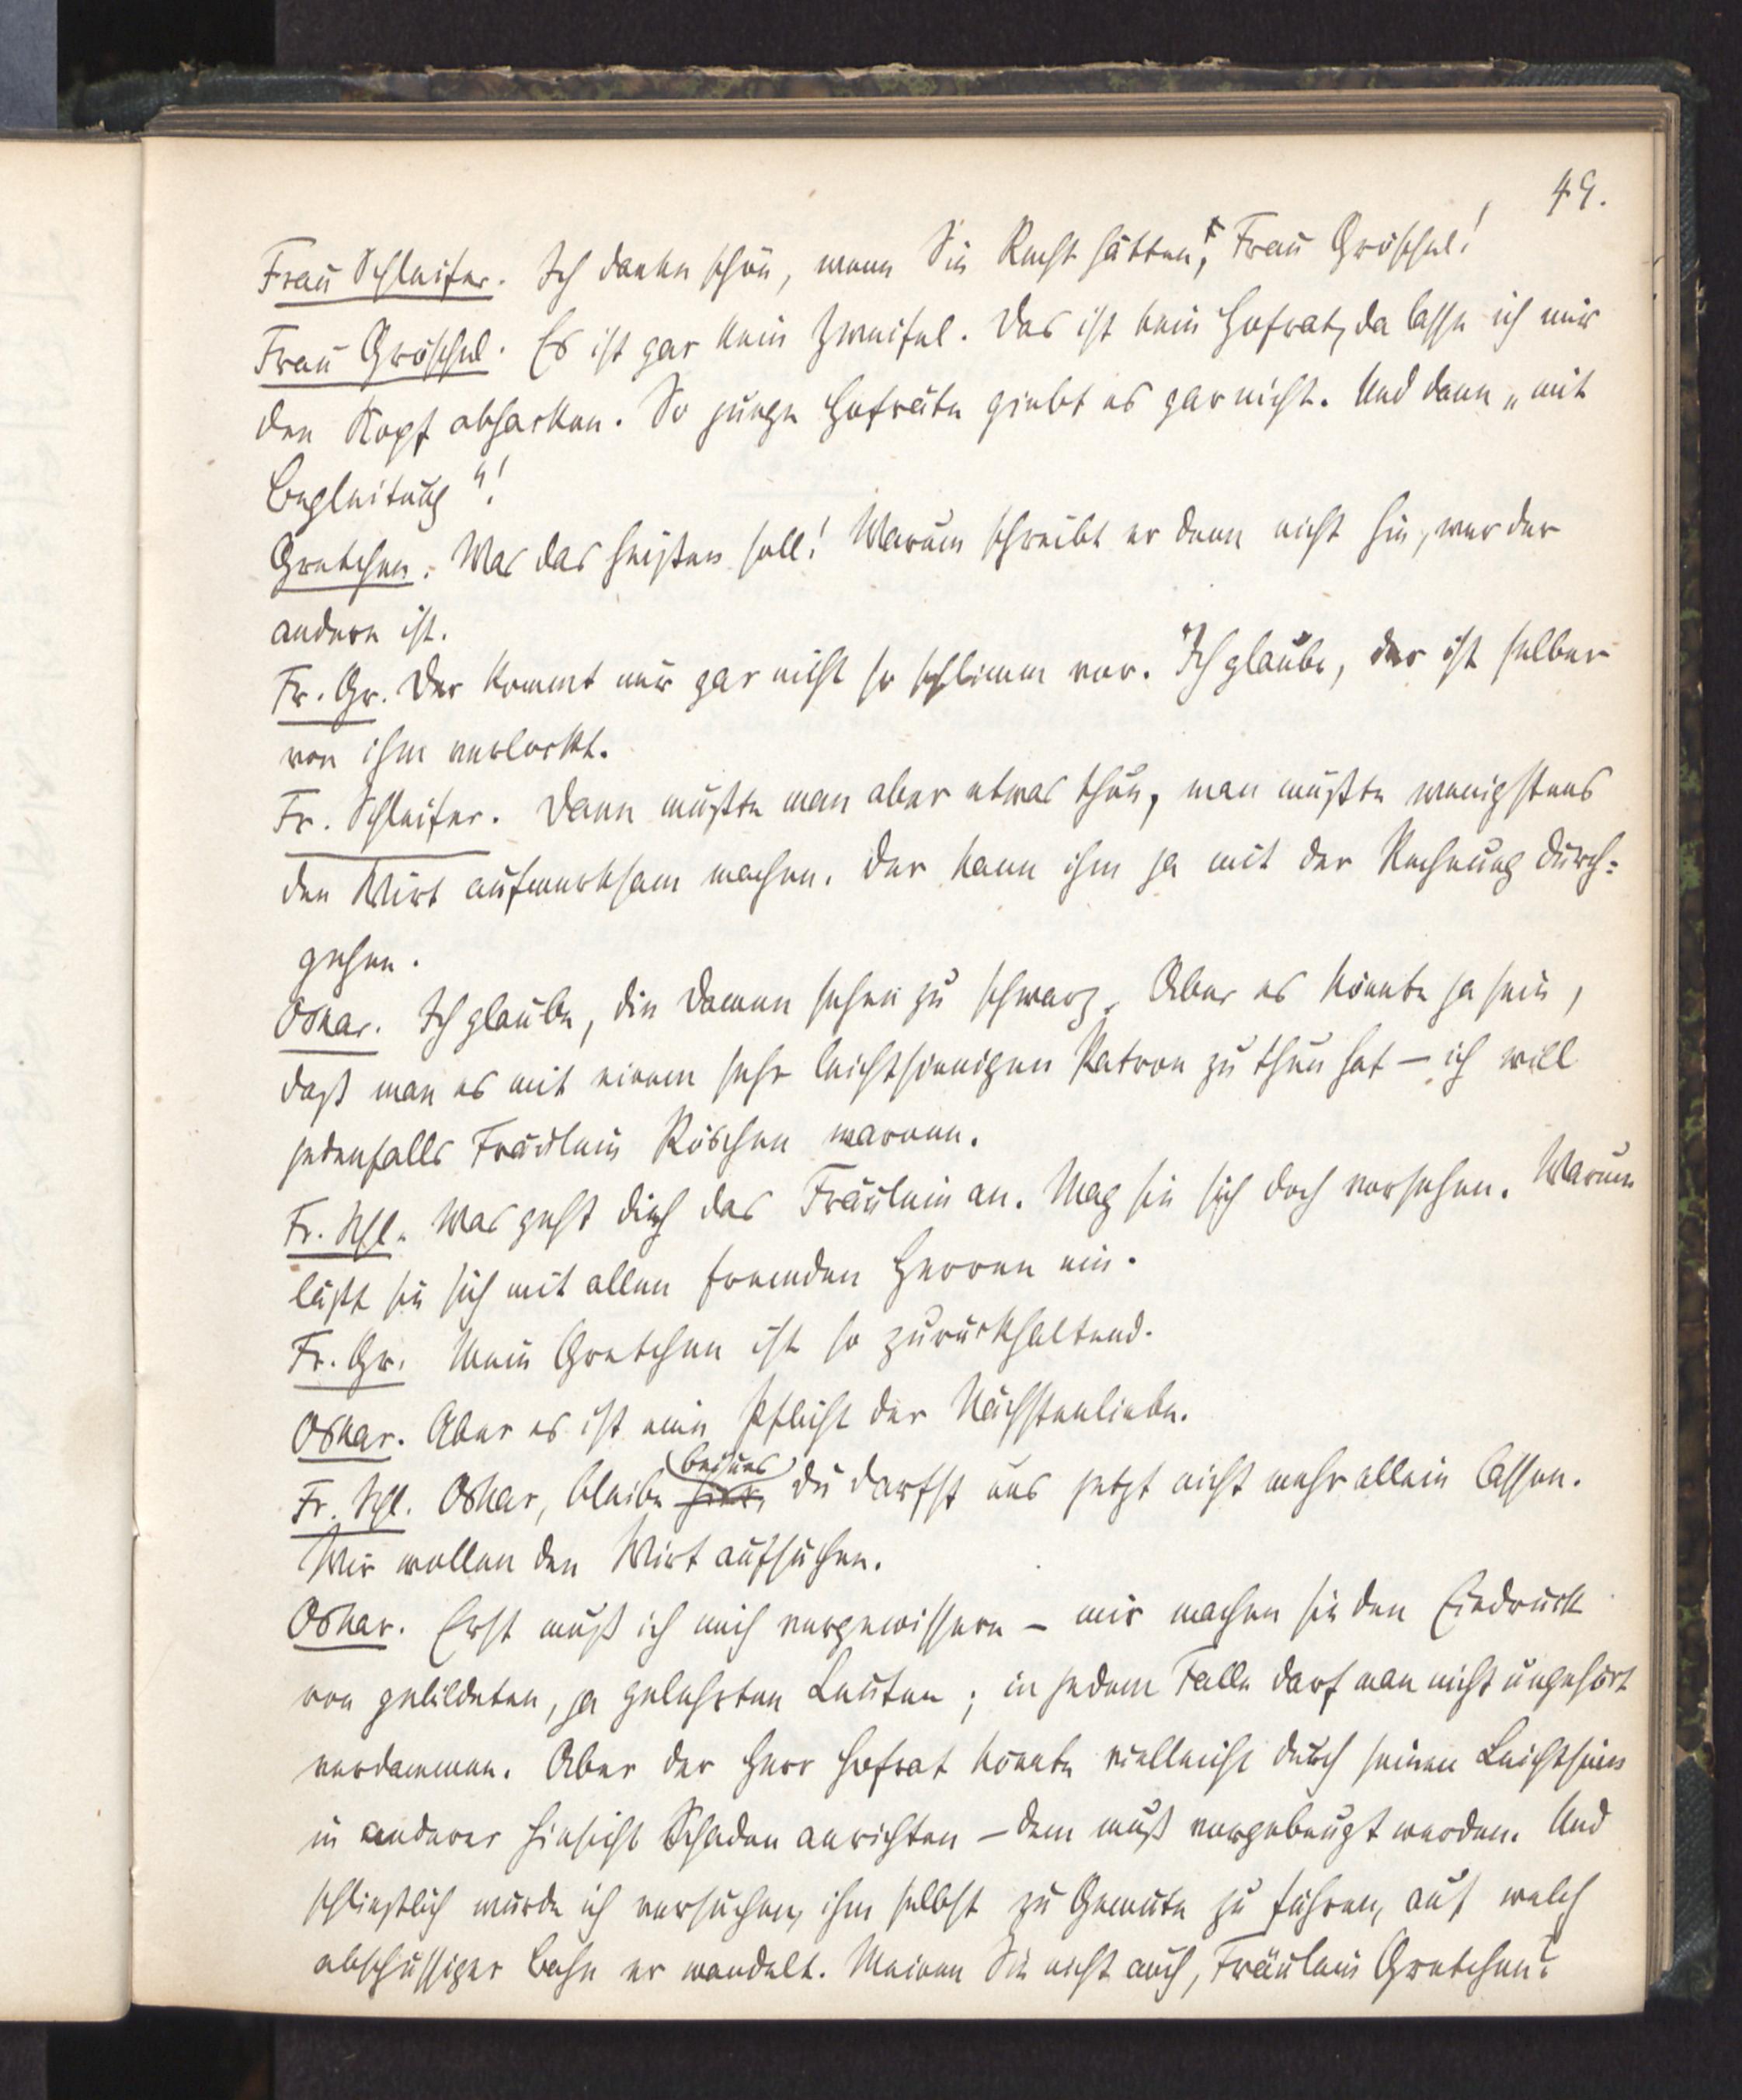 49.
Frau Schleifer. Ich danke schön, wenn Sie Recht hätten, Frau Gröschel!
Frau Gröschel. Es ist gar kein Zweifel. Das ist kein Hofrat, da lasse ich mir
den Kopf abhacken. So junge Hofräte giebt es gar nicht. Und dann „mit
Begleitung“!
Gretchen. Was das heißen soll! Warum schreibt er denn nicht hin, wer der
andere ist.
Fr. Gr. Der kommt mir gar nicht so schlimm vor. Ich glaube, der ist selber
von ihm verlockt.
Fr. Schleifer. Dann müßte man aber etwas thun, man müßte wenigstens
den Wirt aufmerksam machen. Der kann ihm ja mit der Rechnung durch=
gehen.
Oskar. Ich glaube, die Damen sehen zu schwarz. Aber es könnte ja sein,
daß man es mit einem sehr leichtsinnigen Patron zu thun hat – ich will
jedenfalls Fräulein Röschen warnen.
Fr. Schl. Was geht dich das Fräulein an. Mag sie sich doch vorsehen. Warum
läßt sie sich mit allen fremden Herren ein.
Fr. Gr. Mein Gretchen ist so zurückhaltend.
Oskar. Aber es ist eine Pflicht der Nächstenliebe.
Fr. Schl. Oskar, bleibe bei uns hier, du darfst uns jetzt nicht mehr allein lassen.
Wir wollen den Wirt aufsuchen.
Oskar. Erst muß ich mich vergewissern – mir machen sie den Eindruck
von gebildeten, ja gelehrten Leuten; in jedem Falle darf man nicht ungehört
verdammen. Aber der Herr Hofrat könnte vielleicht durch seinen Leichtsinn
in anderer Hinsicht Schaden anrichten – dem muß vorgebeugt werden. Und
schließlich würde ich versuchen, ihm selbst zu Gemüte zu führen, auf welch
abschüssiger Bahn er wandelt. Meinen Sie nicht auch, Fräulein Gretchen?